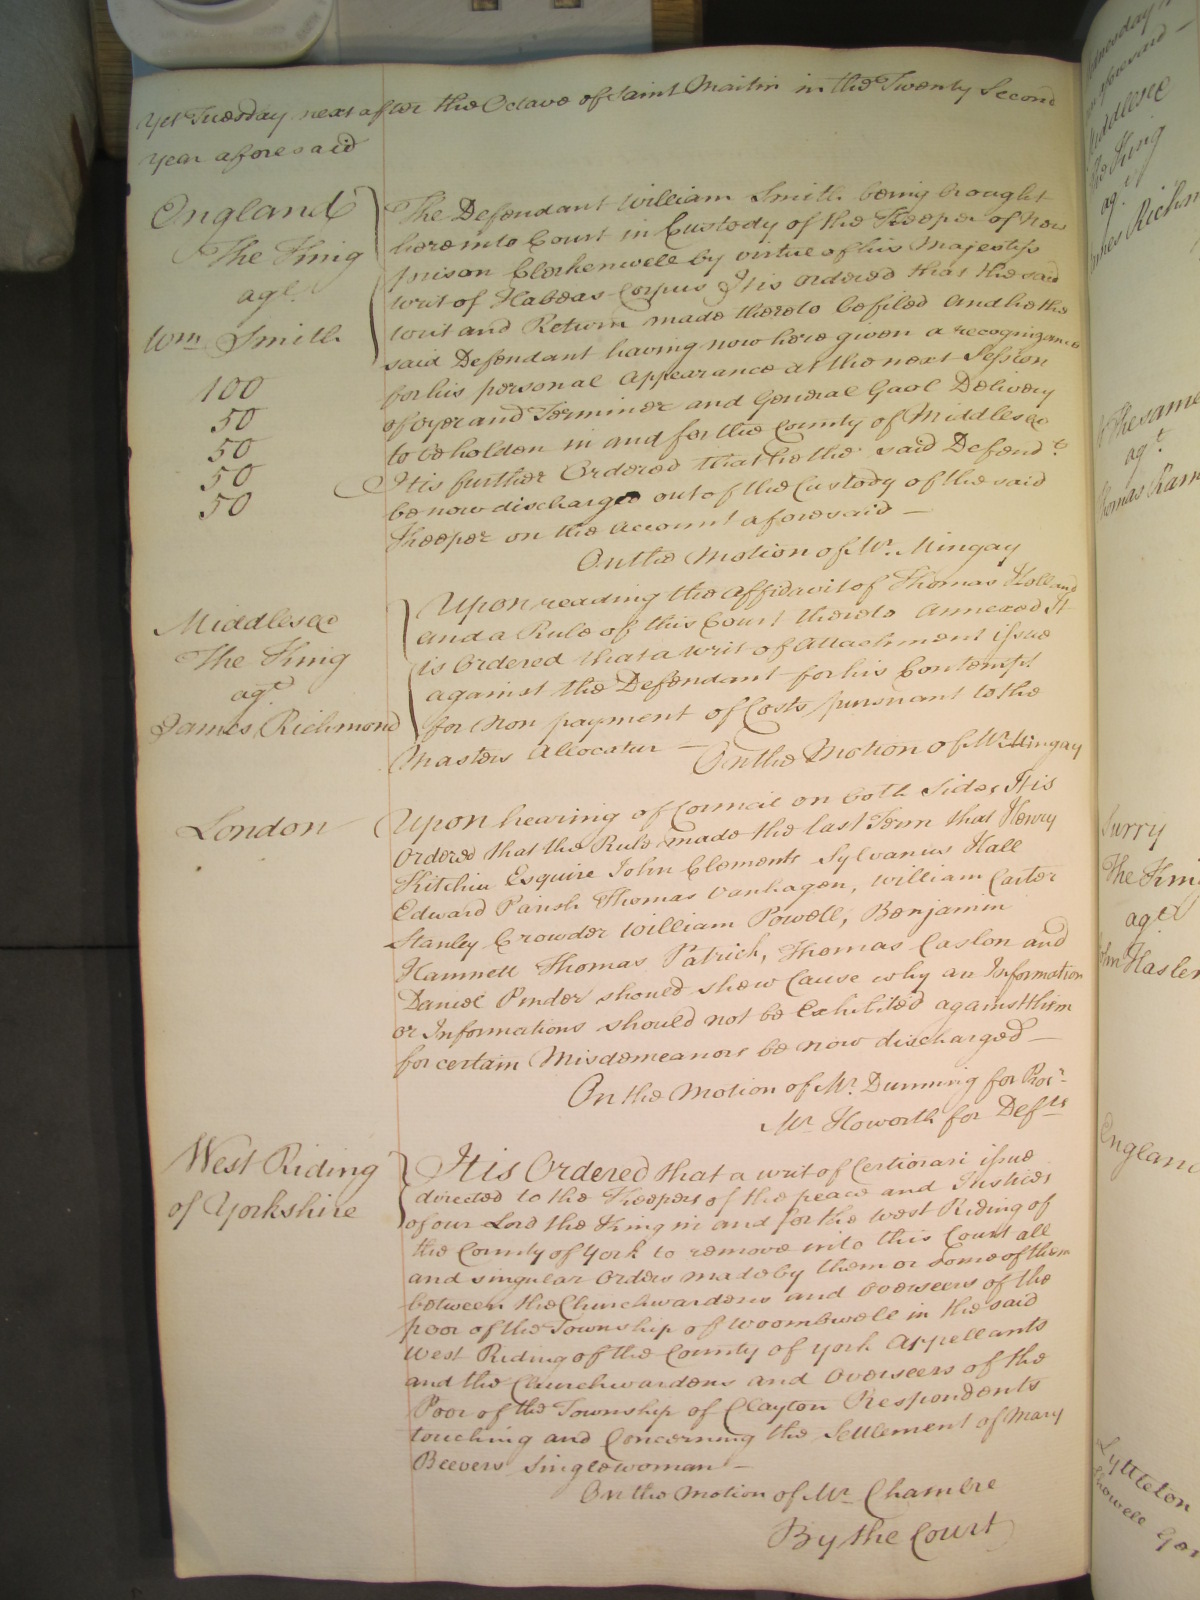 Yet Tuesday next after the Octave of Saint Martin in the Twenty Second
Year aforesaid
England
The King
agt.
Wm Smith
100
50
50
50
50
The Defendant William Smith being brought
here into Court in Custody of the Keeper of New
prison Clerkenwell by virtue of his Majestys
writ of Habeas Corpus It is ordered that the said
writ and Return made thereto be filed And he the
said Defendant having now here given a recognizance
for his personal Appearance at the next Session
of oyer and Terminer and General Gaol Delivery
to be holden in and for the County of Middlesex
It is further Ordered that he the said Defendt.
be now discharged out of the Custody of the said
Keeper on the Account aforesaid —
On the Motion of Mr. Mingay
Middlesex
The King
agt.
James Richmond
Upon reading the Affidavit of Thomas Holland
and a Rule of this Court thereto Annexed It
is Ordered that a writ of Attachment issue
against the Defendant for his Contempt
for Non payment of Costs pursuant to the
Masters Allocatur —
On the Motion of Mr. Mingay
London
Upon hearing of Council on both Sides It is
Ordered that the Rule made the last Term that Henry
Kitchin Esquire John Clements Sylvanus Hall
Edward Parish Thomas Vanhagen, William Carter
Stanley Crowder William Powell, Benjamin
Hamnett Thomas Patrick, Thomas Caslon and
Daniel Pinder should shew Cause why an Information
or Informations should not be Exhibited against them
for certain Misdemeanors be now discharged —
On the Motion of Mr. Dunning for Pros.r
Mr. Howorth for Defts
West Riding
of Yorkshire
It is Ordered that a writ of Certiorari issue
directed to the Keepers of the peace and Justices
of our Lord the King in and for the West Riding of
the County of York to remove into this Court all
and singular Orders made by them or some of them
between the Churchwardens and Overseers of the
poor of the Township of Woombwell in the said
West Riding of the County of York Appellants
and the Churchwardens and Overseers of the
Poor of the Township of Clayton Respondents
touching and Concerning the Settlement of Mary
Beevers Singlewoman —
On the Motion of Mr. Chambre
By the Court
The same
agt.
Surry
agt.